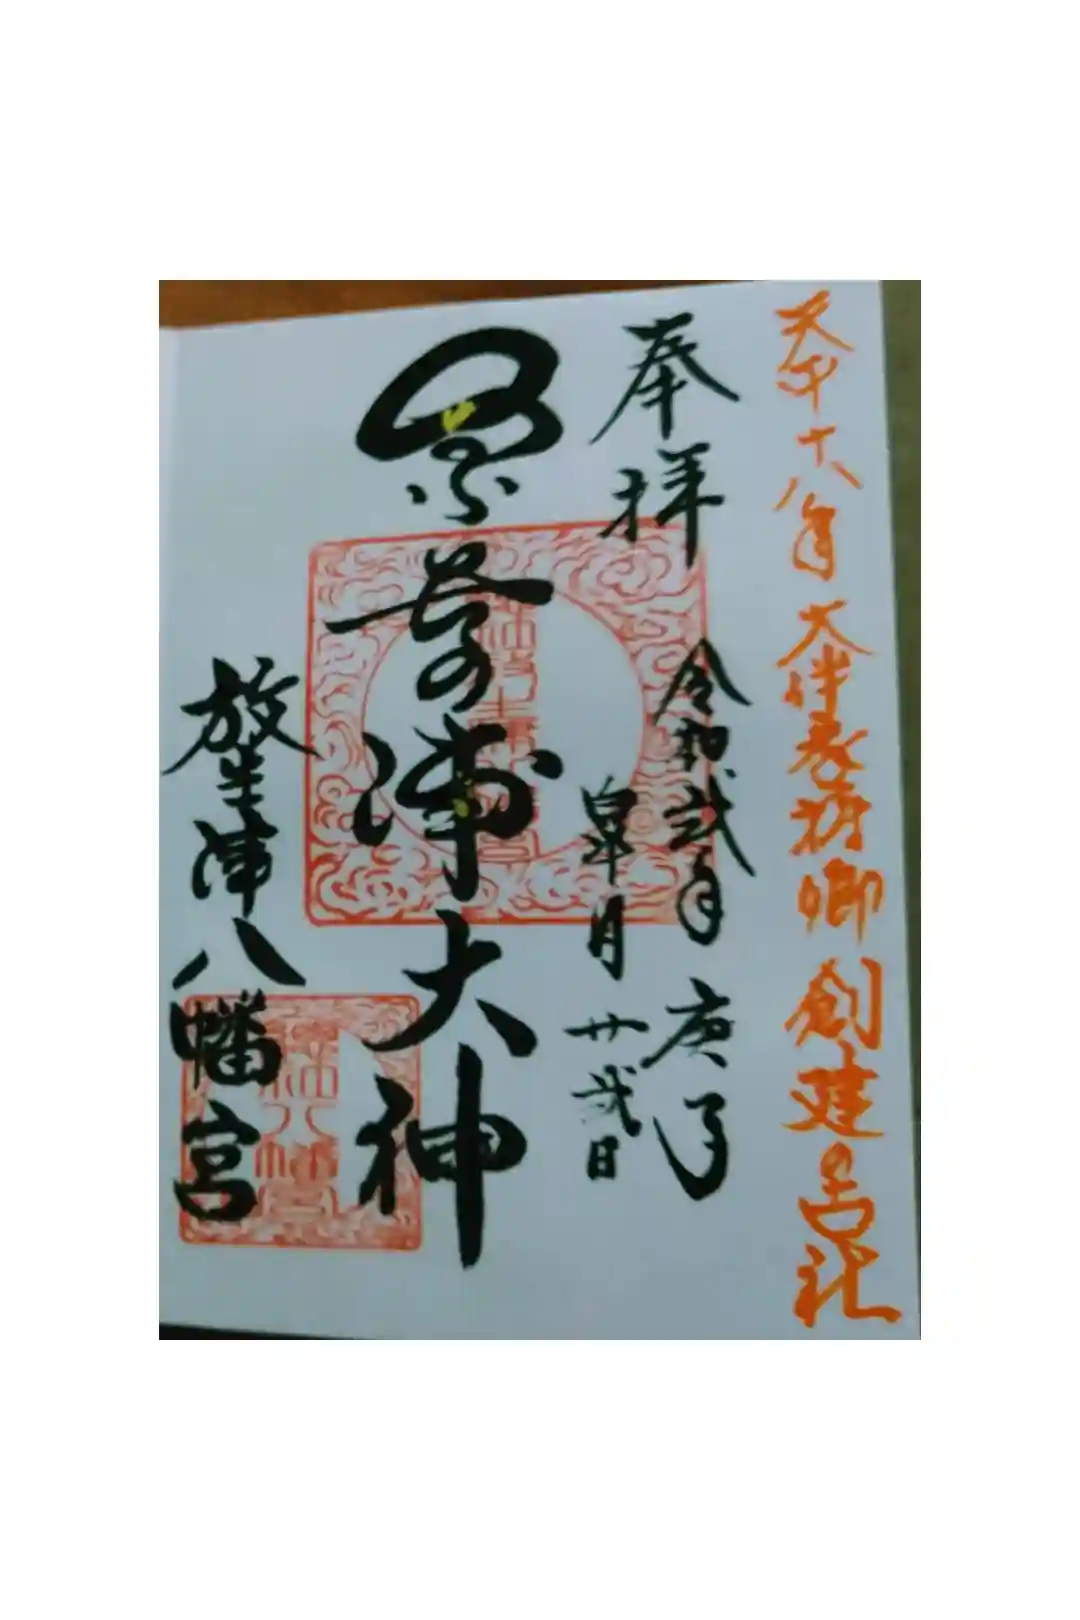 天平十八年 大伴家持卿 創建
奉拝
令和弐年 庚子
皐月 廿弐日
大神
放生津八幡宮